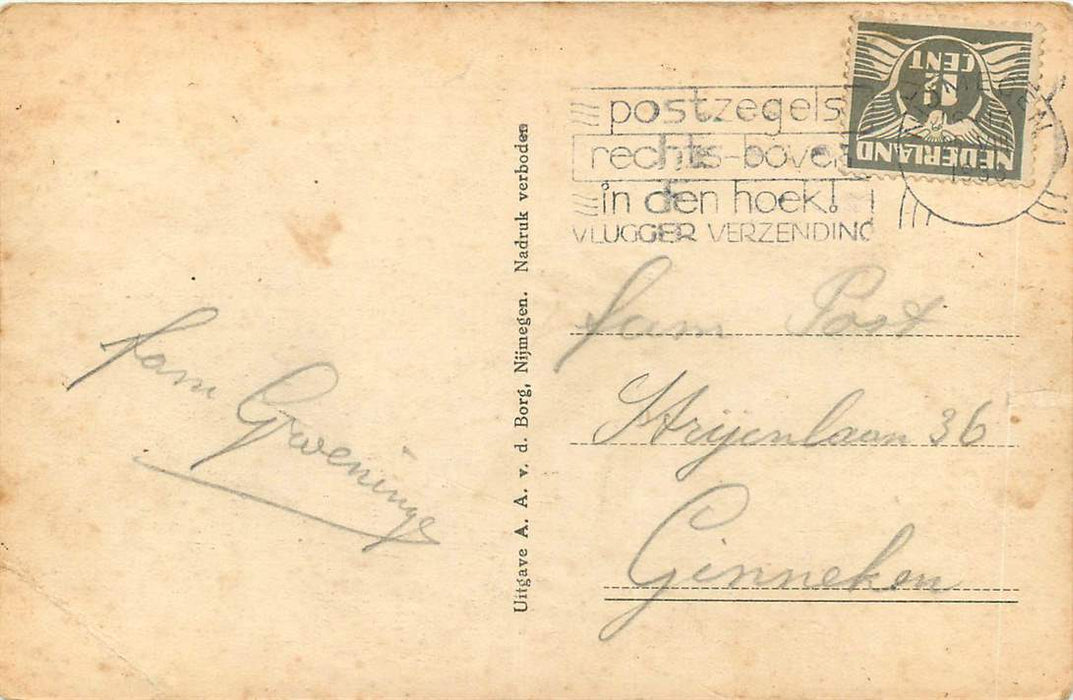 postzegels
rechts-boven
in den hoek!
VLUGGER VERZENDING
NEDERLAND
CENT
Uitgave A. A. v. d. Borg, Nijmegen. Nadruk verboden
fam Groeninge
fam Post
Strijenlaan 36
Ginneken